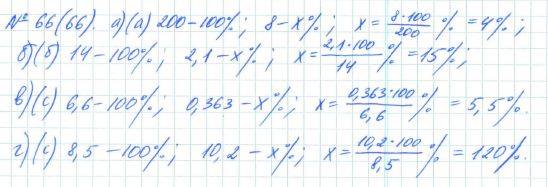 № 66(66). а)(а) 200-100%; 8-х%; х = 8·100/200 % = 4%;
б)(б) 14-100%; 2,1-х%; х = 2,1·100/14 % = 15%;
в)(с) 6,6-100%; 0,363-х%; х = 0,363·100/6,6 % = 5,5%.
г)(с) 8,5-100%; 10,2-х%; х = 10,2·100/8,5 % = 120%.